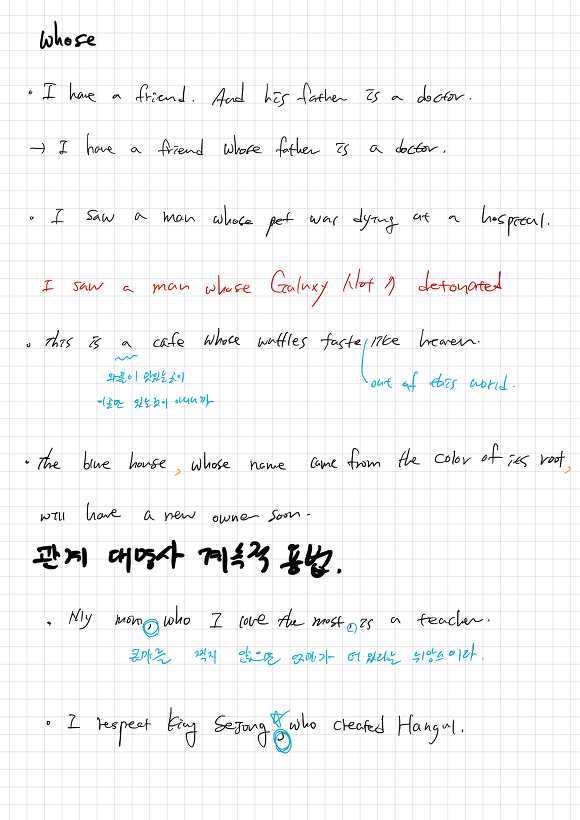 whose
· I have a friend. And his father is a doctor.
→ I have a friend whose father is a doctor.
· I saw a man whose pet was dying at a hospital.
I saw a man whose Galaxy Not 7 detonated
· This is a cafe whose waffles taste like heaven.
와플이 맛있는곳이
out of this world.
이곳만 있는곳이 아니니까
· The blue house, whose name came from the color of its root,
will have a new owner soon.
관계 대명사 계속적 용법.
· My mom, who I love the most, is a teacher.
콤마를 찍지 않으면 엄마가 더 있다는 뉘앙스이라.
· I respect King Sejong, who created Hangul.